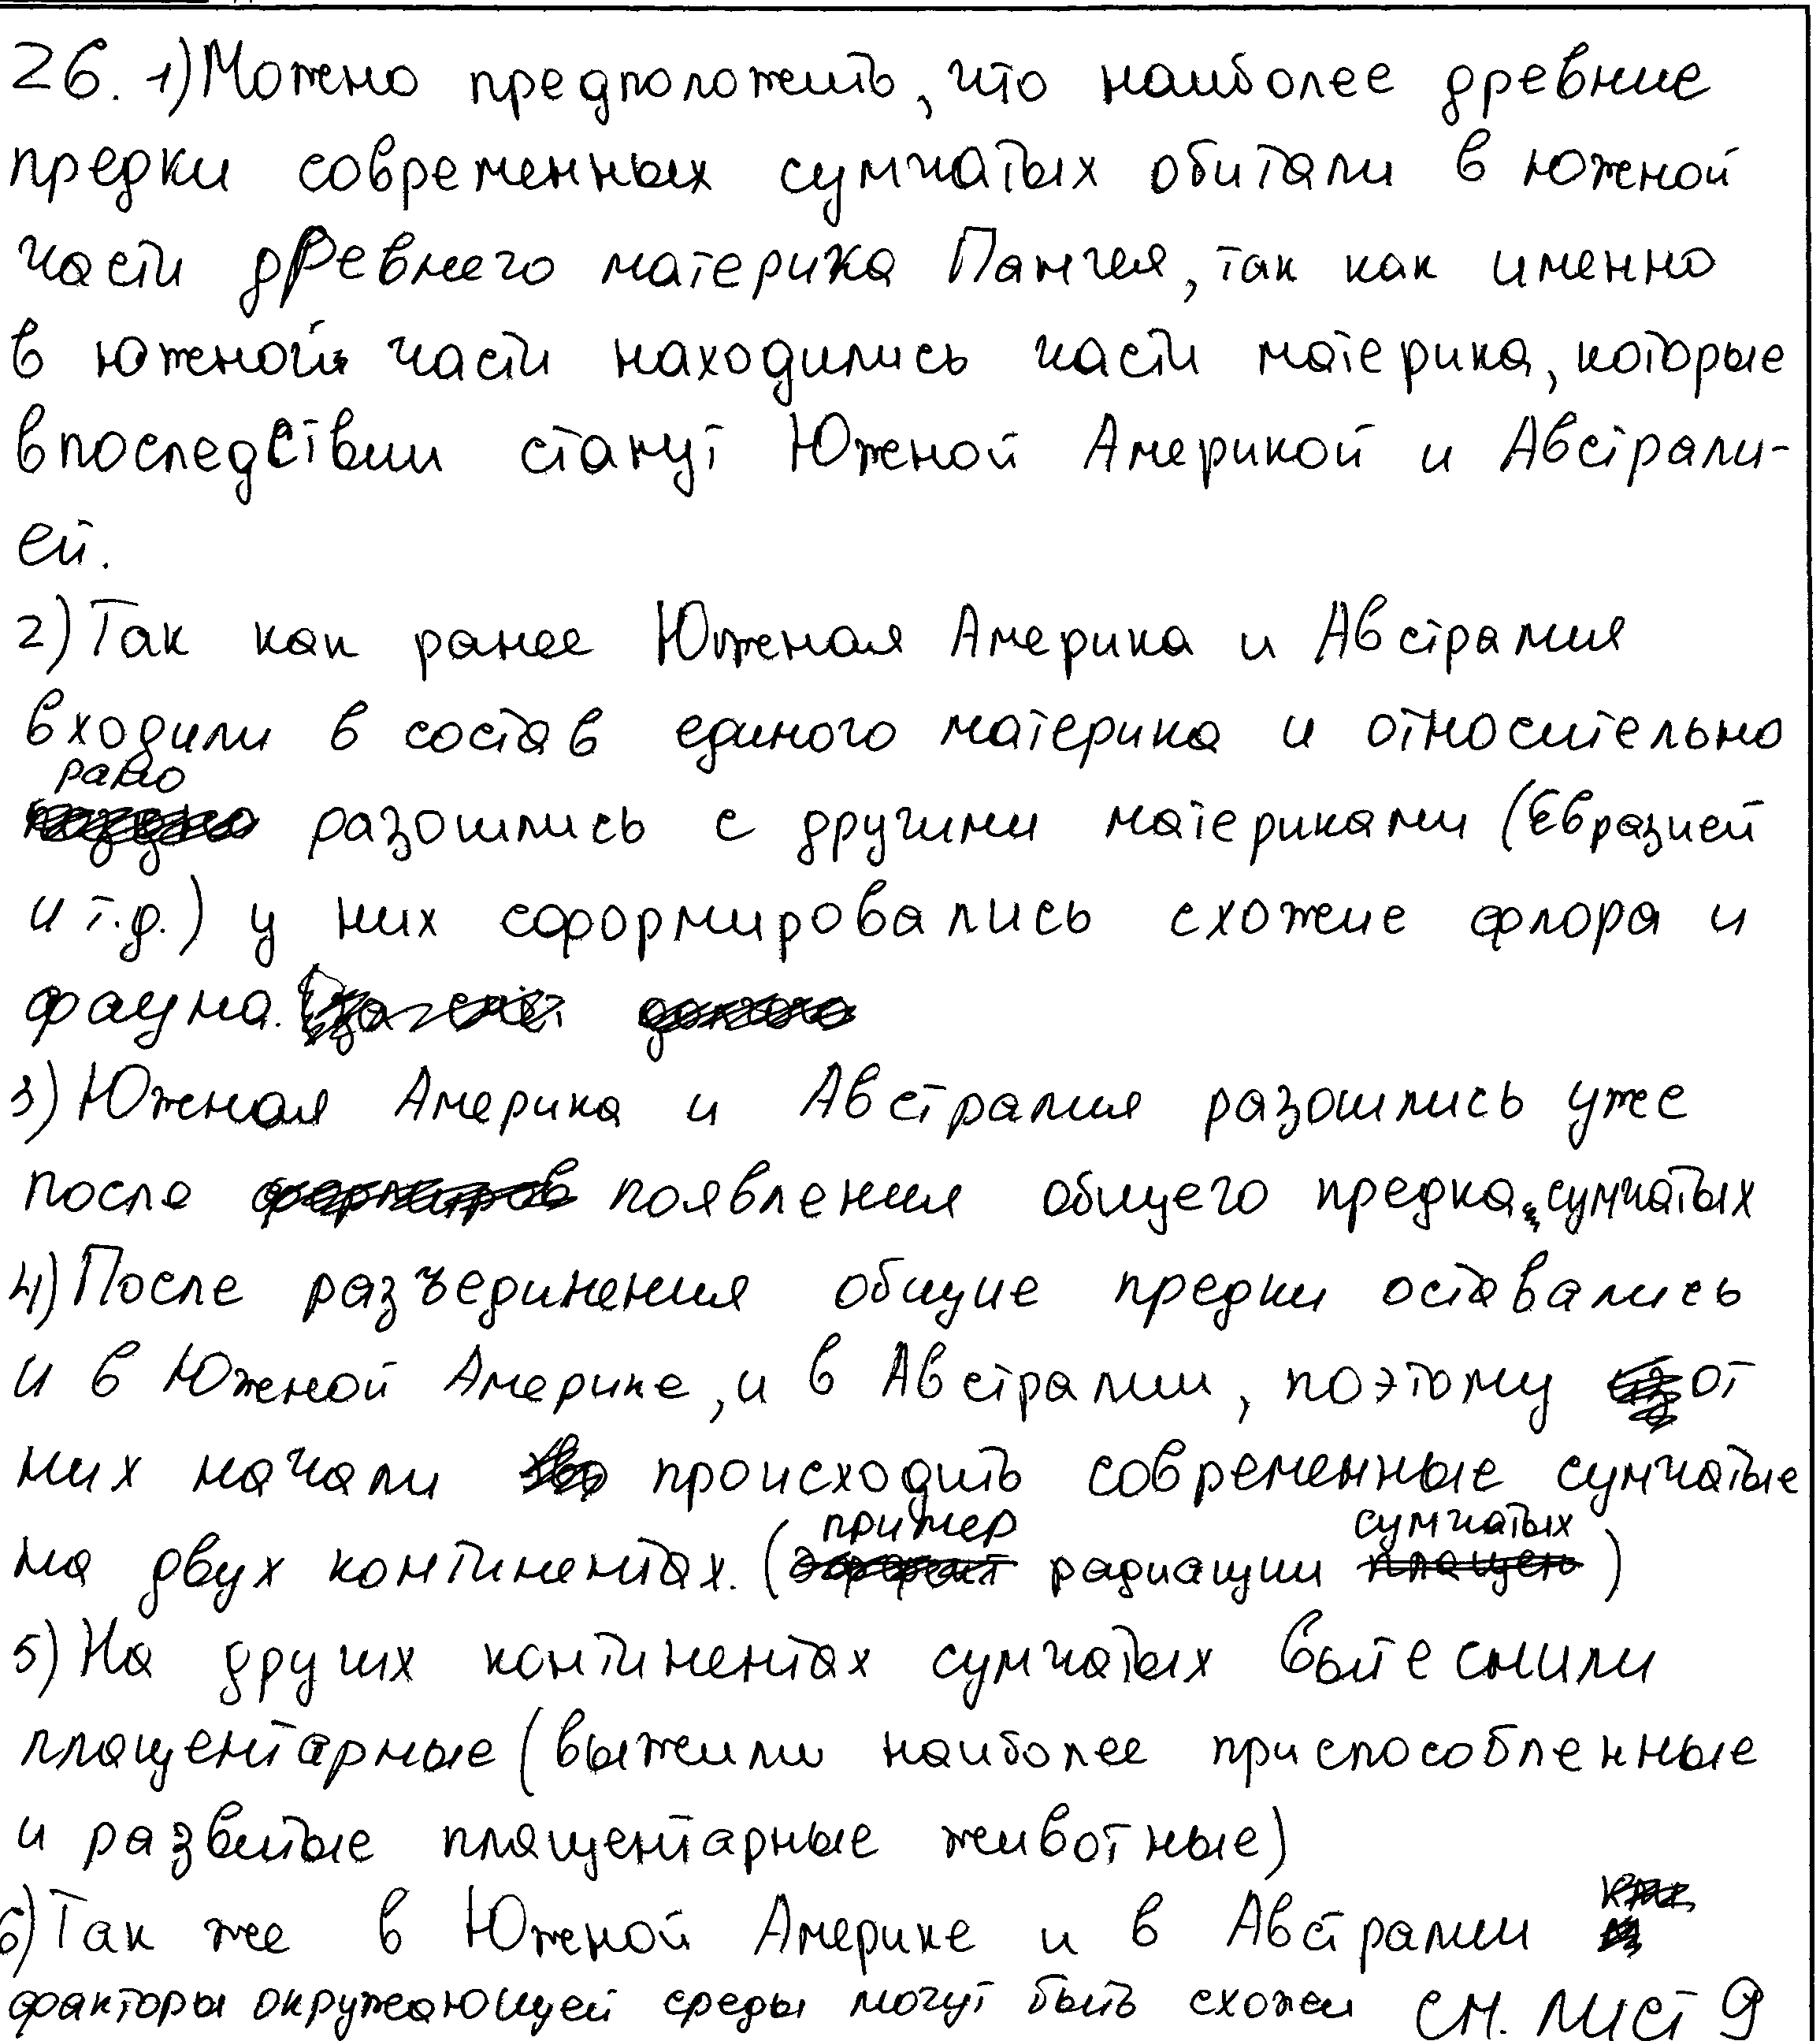 26. 1) Можно предположить, что наиболее древние
предки современных сумчатых обитали в южной
части древнего материка Пангея, так как именно
в южной части находились части материка, которые
впоследствии станут Южной Америкой и Австрали-
ей.
2) Так как ранее Южная Америка и Австралия
входили в состав единого материка и относительно
рано
разошлись с другими материками (Евразией
и т.д.) у них сформировались схожие флора и
фауна.
3) Южная Америка и Австралия разошлись уже
после появления общего предка сумчатых
4) После разъединения общие предки оставались
и в Южной Америке, и в Австралии, поэтому от
них начали происходить современные сумчатые
пример сумчатых
на двух континентах. ( радиации )
5) На других континентах сумчатых вытеснили
плацентарные (выжили наиболее приспособленные
и развитые плацентарные животные)
6) Так же в Южной Америке и в Австралии
факторы окружающей среды могут быть схожи см. лист 9